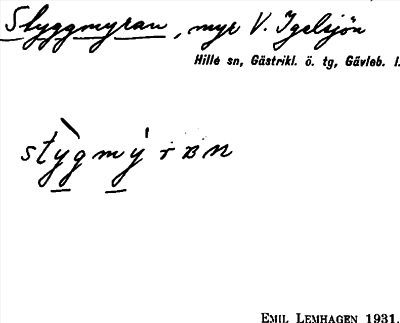 Styggmyran, myr V. Igelsjön
Hille sn, Gästrikl. ö. tg, Gävleb. l.
stỳgmýran
EMIL LEMHAGEN 1931.